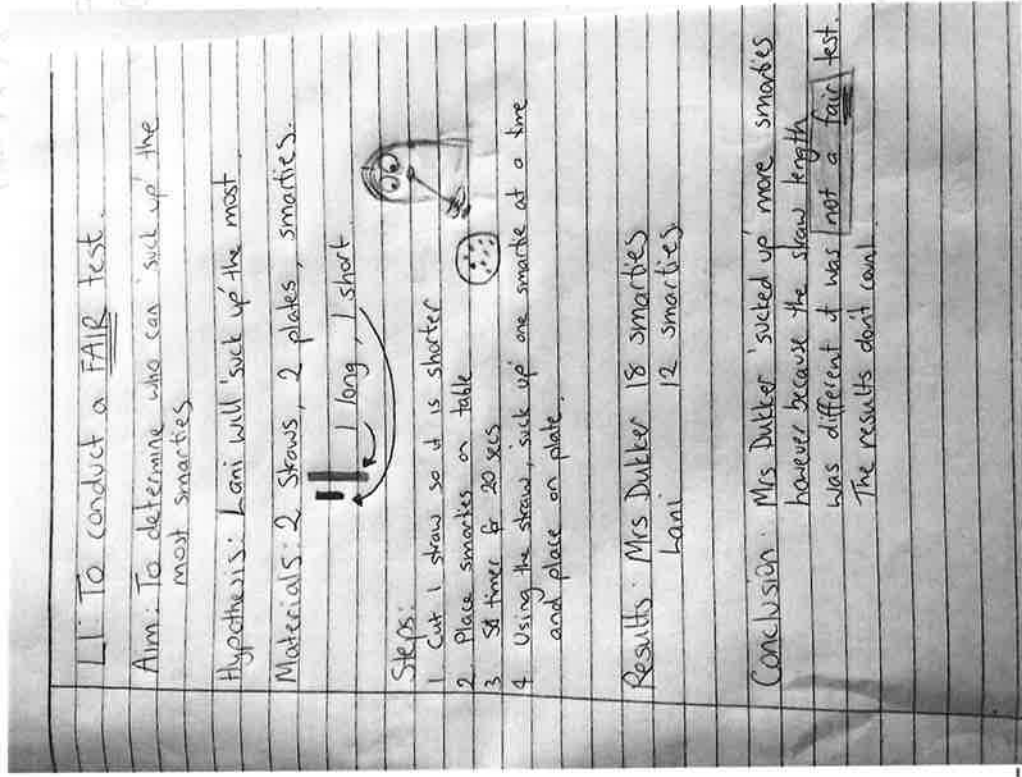 LI: To conduct a FAIR test.
Aim: To determine who can 'suck up' the
most smarties.
Hypothesis: Lani will 'suck up' the most
Materials: 2 straws, 2 plates, smarties.
1 long, 1 short
Steps:
1 Cut 1 straw so it is shorter
2 Place smarties on table
3 Set timer for 20 secs
4 Using the straw, 'suck up' one smartie at a time
and place on plate.
Results: Mrs Dukker 18 smarties
Lani 12 smarties
Conclusion: Mrs Dukker 'sucked up' more smarties
however because the straw length
was different it was not a fair test.
The results don't count.